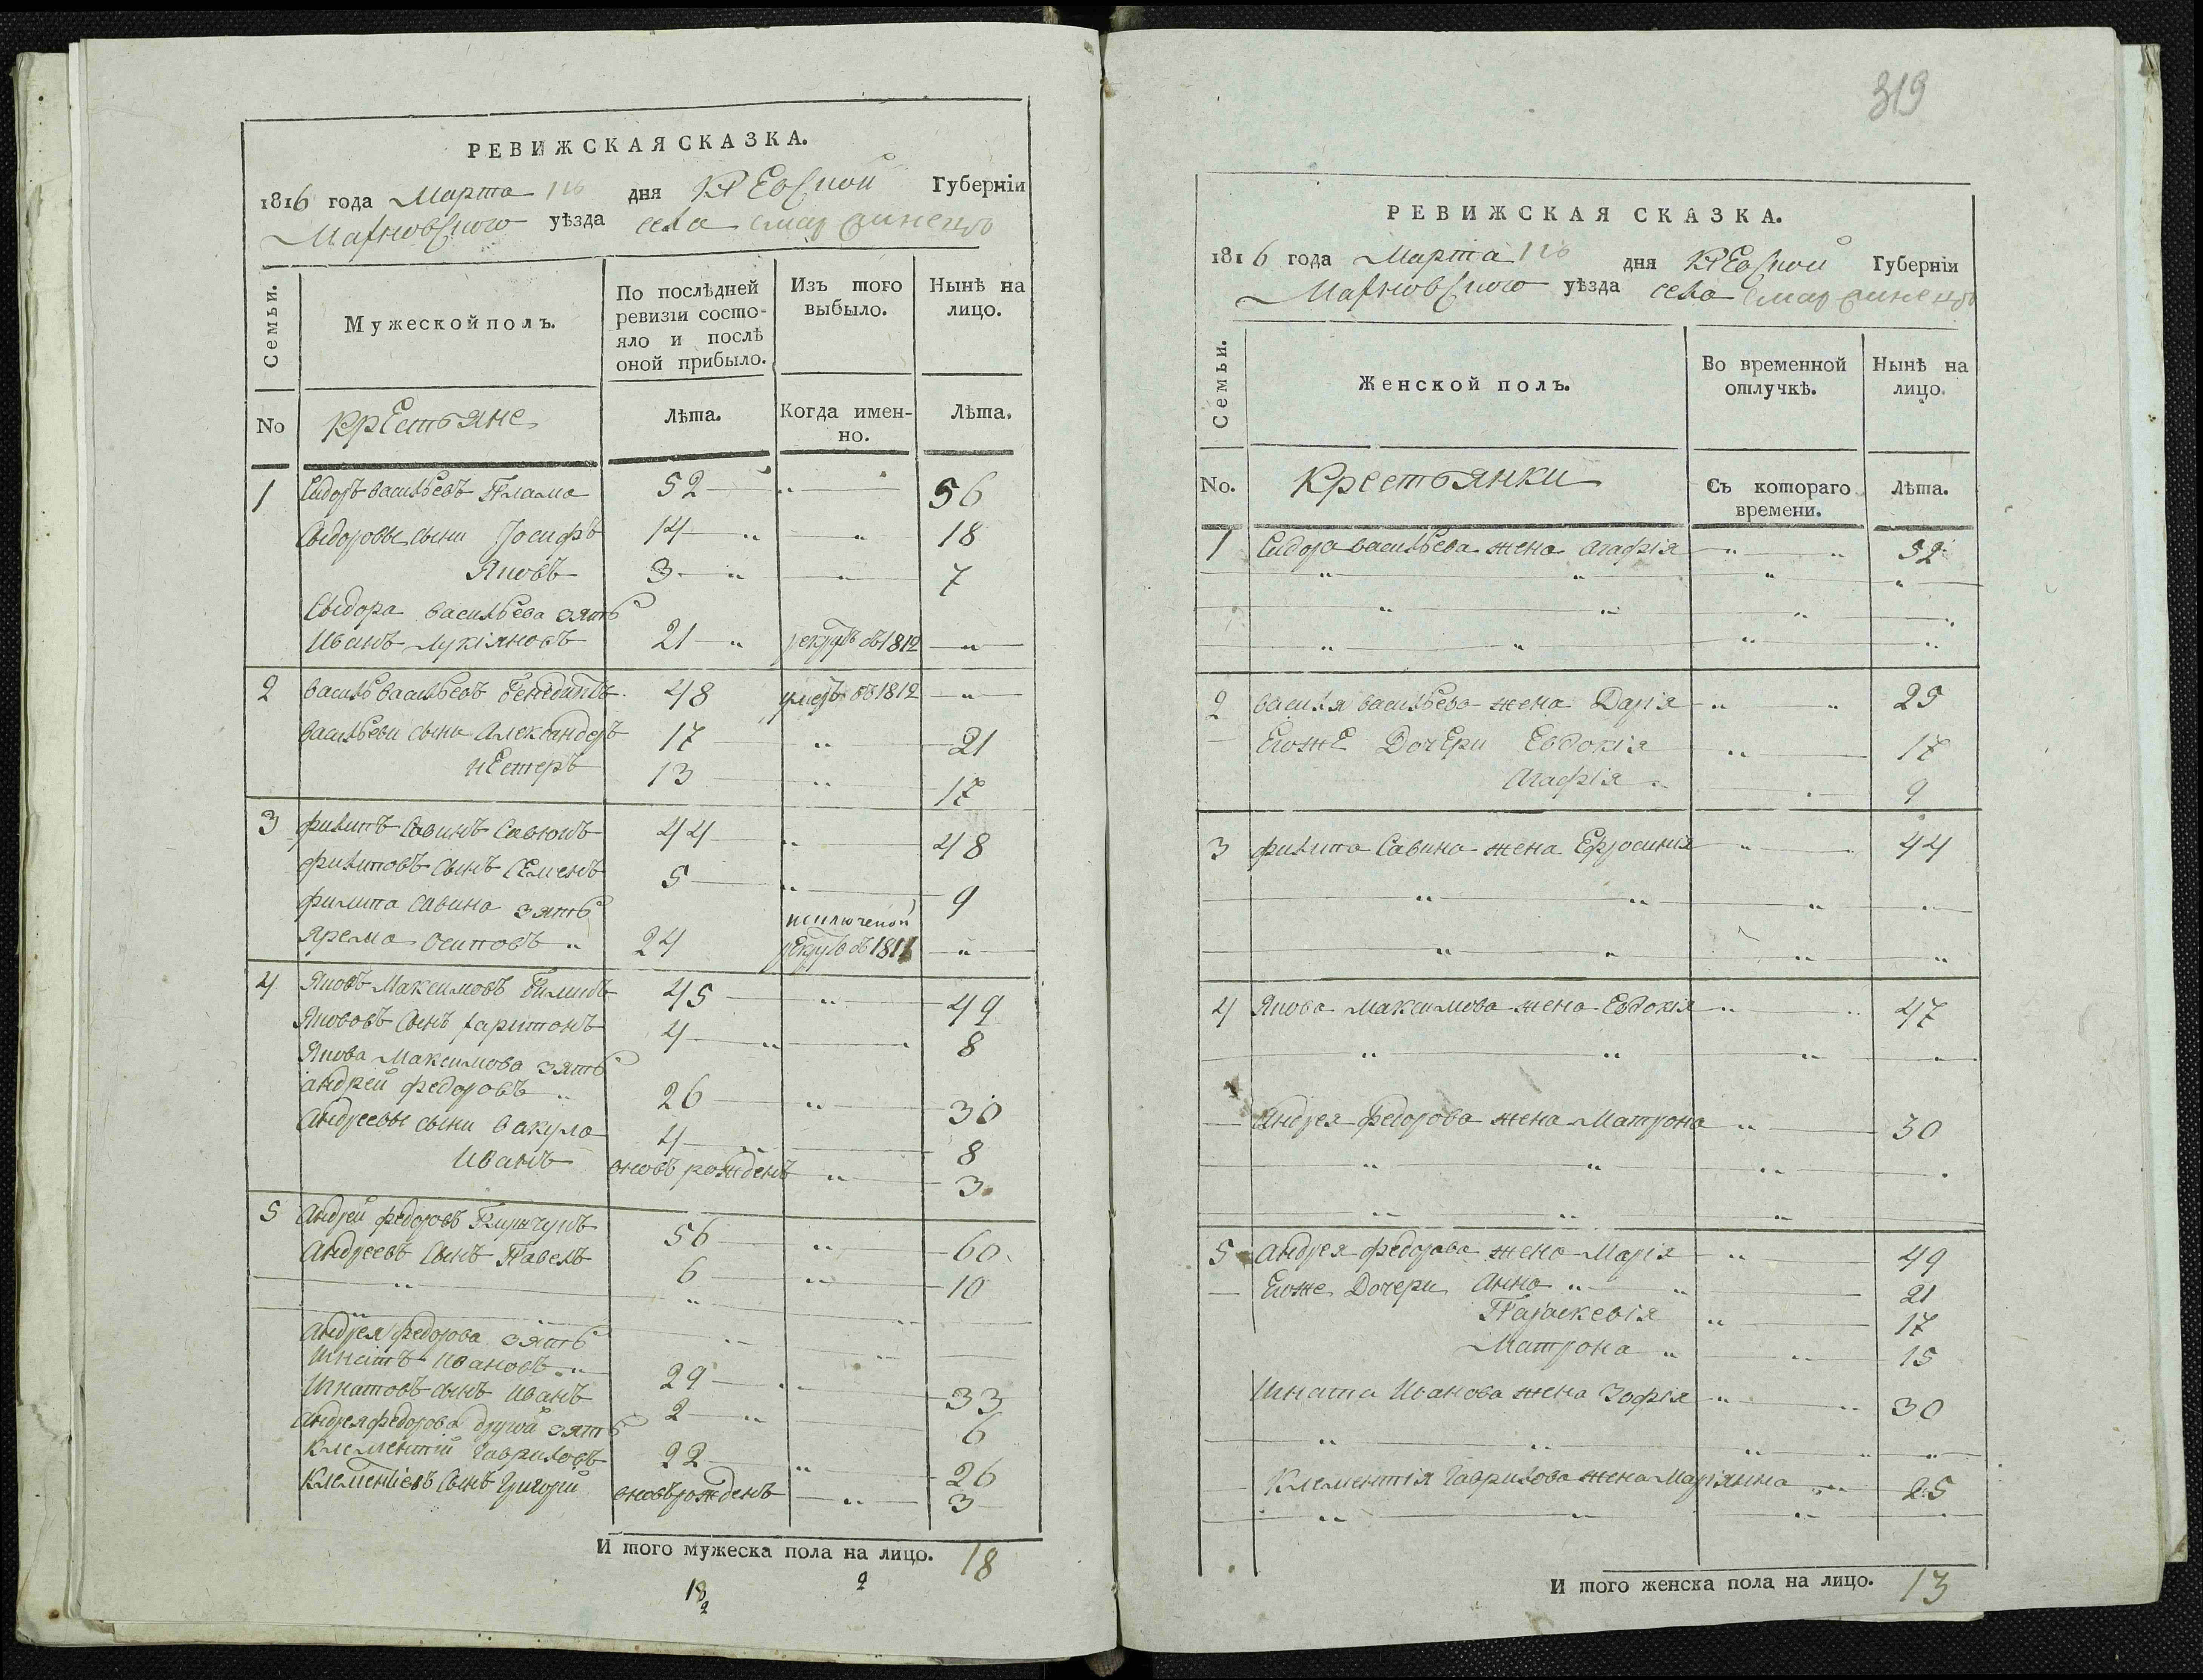 РЕВИЖСКАЯ СКАЗКА.
1816 года Марта дня Киевской Губерніи
Махновского уѣзда села
Семьи.
Мужеской полъ.
По послѣдней ревизіи состояло и послѣ оной прибыло.
Изъ того выбыло.
Нынѣ на лицо.
No
Крестьяне
Лѣта.
Когда именно.
Лѣта.
1 Сидоръ васильевъ 52 56
Сыдоровы сыни Іосифъ 14 18
Яковъ 3 7
Сыдора васильева зять
Иванъ Лукіяновъ 21 рекрутъ въ 1812
2 василь васильевъ 48 умеръ въ 1812
васильеви сыни Александеръ 17 21
нестеръ 13 17
3 филипъ Савинъ 44 48
филиповъ сынъ Семенъ 5 9
филипа савина зять
Ярема осиповъ 24 рекрутъ въ 1811
4 Яковъ Максимовъ 45 49
Якововъ Сынъ харитонъ 4 8
Якова Максимова зять
андрей федоровъ 26 30
Андреевы сыни вакула 4 8
Иванъ вновь рожденъ 3
5 Андрей федоровъ 56 60
Андреевъ Сынъ Павелъ 6 10
Андрея федорова зять
Игнатъ Ивановъ 29 33
Игнатовъ сынъ Иванъ 2 6
Андрея федорова другой зять
Клементій Гавриловъ 22 26
Клементіевъ Сынъ Григорій вновь рожденъ 3
И того мужеска пола на лицо. 18
18 2
2
319
РЕВИЖСКАЯ СКАЗКА.
1816 года Марта дня Киевской Губерніи
Махновского уѣзда села
Семьи.
Женской полъ.
Во временной отлучкѣ.
Нынѣ на лицо.
No.
Крестьянки
Съ котораго времени.
Лѣта.
1 Сидора васильева жена Агафія 52
2 василя васильева жена Дарія 25
Егоже Дочери Евдокія 17
Агафія 9
3 филипа Савина жена Ефросинія 44
4 Якова Максимова жена Евдокія 47
Андрея Федорова жена Матрона 30
5 андрея федорова жена Марія 49
Егоже Дочери Анна 21
Параскевія 17
Матрона 15
Игната Иванова жена Зофія 30
Клементія Гаврилова жена Маріянна 25
И того женска пола на лицо. 13